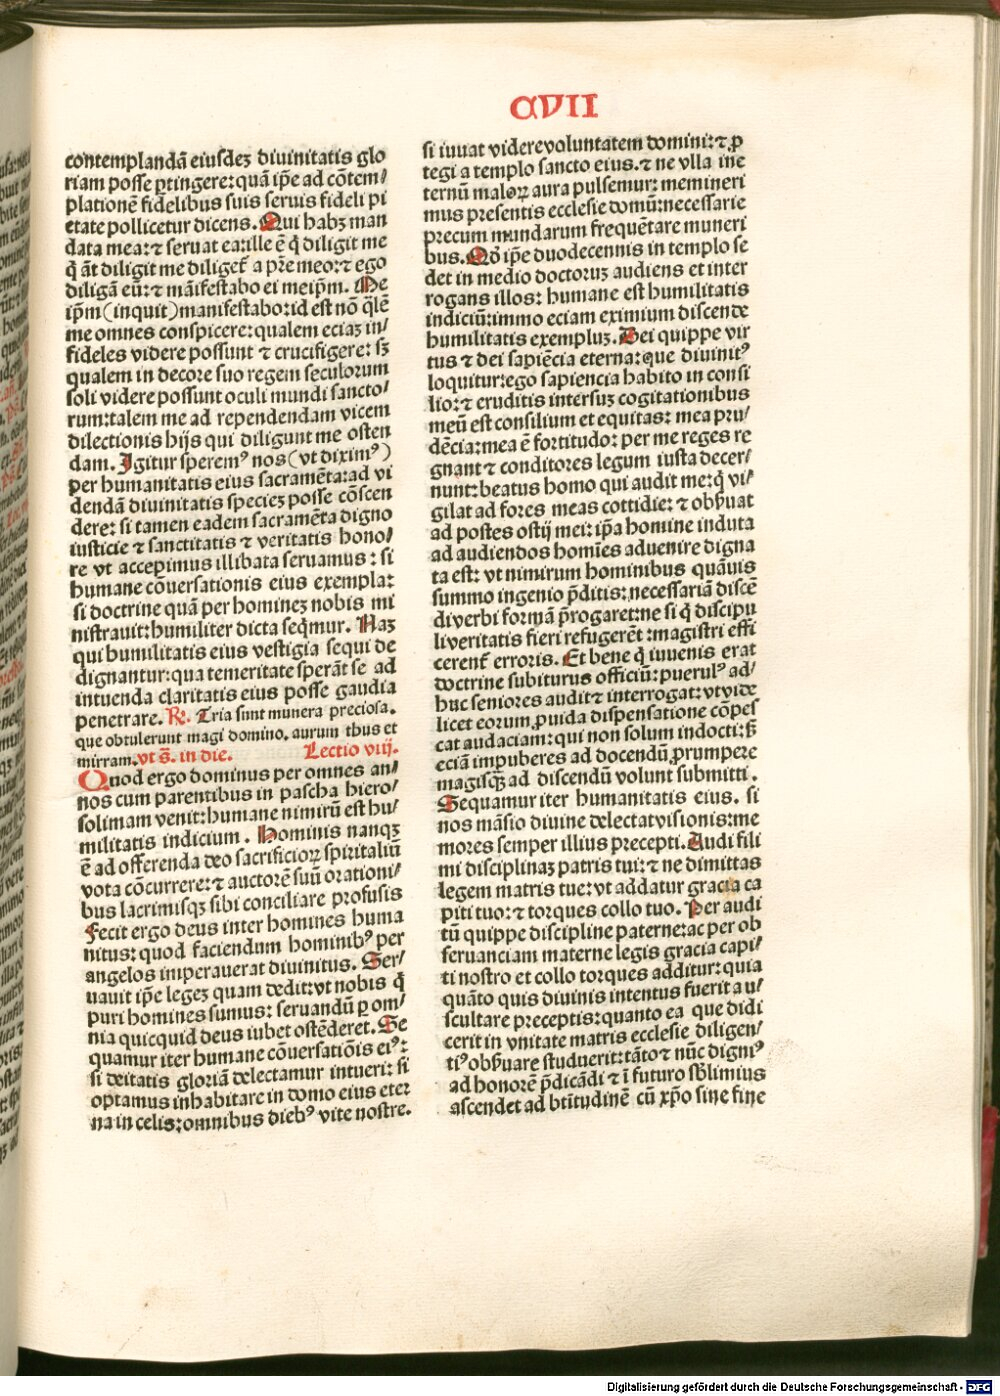 CVII
contemplandā eiusdeꝫ diuinitatis glo
riam posse ꝑtingere: quā ip̄e ad cōtem/
platione fidelibus suis seruis fideli pi
etate pollicetur dicens. Qui habꝫ man
data mea: ⁊ seruat ea: ille ē q̄ diligit me
q̄ āt diligit me diliget̄ a pr̄e meo: ⁊ ego
diligā eū: ⁊ māifestabo ei meip̄m. Me
ip̄m (inquit) manifestabo: id est nō q̄lē
me omnes conspicere: qualem eciaꝫ in/
fideles videre possunt ⁊ crucifigere: sꝫ
qualem in decore suo regem seculorum
soli videre possunt oculi mundi sancto/
rum: talem me ad rependendam vicem
dilectionis hijs qui diligunt me osten
dam. Igitur speremꝰ nos (vt diximꝰ)
per humanitatis eius sacramēta: ad vi
dendā diuinitatis specieꝫ posse cōscen
dere: si tamen eadem sacramēta digno
iusticie ⁊ sanctitatis ⁊ veritatis hono/
re vt accepimus illibata seruamus: si
humane cōuersationis eius exempla:
si doctrine quā per homineꝫ nobis mi
nistrauit: humiliter dicta seq̄mur. Naꝫ
qui humilitatis eius vestigia sequi de
dignantur: qua temeritate sperāt se ad
intuenda claritatis eius posse gaudia
penetrare. R̄. Tria sunt munera preciosa.
que obtulerunt magi domino. aurum thus et
mirram. vt s̄. in die. Lectio viij.
Quod ergo dominus per omnes an/
nos cum parentibus in pascha hiero/
solimam venit: humane nimirū est hu/
militatis indicium. Hominis nanqꝫ
ē ad offerenda deo sacrificioꝝ spiritaliū
vota cōcurrere: ⁊ auctorē suū orationi/
bus lacrimisqꝫ sibi conciliare profusis
Fecit ergo deus inter homines huma
nitus: quod faciendum hominibꝰ per
angelos imperauerat diuinitus. Ser/
uauit ip̄e legeꝫ quam dedit: vt nobis q̄
puri homines sumus: seruandū ꝑ om/
nia quicquid deus iubet ostēderet. Se
quamur iter humane cōuersatiōis eiꝰ:
si deitatis gloriā delectamur intueri: si
optamus inhabitare in domo eius eter
na in celis: omnibus diebꝰ vite nostre.
si iuuat videre voluntatem domini: ⁊ ꝓ
tegi a templo sancto eius. ⁊ ne vlla ine
ternū maloꝝ aura pulsemur: memineri
mus presentis ecclesie domū: necessarie
precum mundarum frequētare muneri
bus. Qd̄ ip̄e duodecennis in templo se
det in medio doctoruꝫ audiens et inter
rogans illos: humane est humilitatis
indiciū: immo eciam eximium discende
humilitatis exempluꝫ. Dei quippe vir
tus ⁊ dei sapiēcia eterna: que diuinitꝰ
loquitur: ego sapiencia habito in consi
lio: ⁊ eruditis intersuꝫ cogitationibus
meū est consilium et equitas: mea pru/
dēcia: mea ē fortitudo: per me reges re
gnant ⁊ conditores legum iusta decer/
nunt: beatus homo qui audit me: q̄ vi/
gilat ad fores meas cottidie: ⁊ obs̄uat
ad postes ostij mei: ip̄a homine induta
ad audiendos homīes aduenire digna
ta est: vt nimirum hominibus quāuis
summo ingenio p̄ditis: necessariā discē
di verbi formā p̄rogaret: ne si q̄ discipu
li veritatis fieri refugerēt: magistri effi
cerent̄ erroris. Et bene q̄ iuuenis erat
doctrine subiturus officiū: puerulꝰ ad/
huc seniores audit ⁊ interrogat: vt vide
licet eorum ꝓuida dispensatione cōpes
cat audaciam: qui non solum indocti: sꝫ
eciā impuberes ad docendū ꝓrumpere
magisqꝫ ad discendū volunt submitti.
Sequamur iter humanitatis eius. si
nos māsio diuine delectat visionis: me
mores semper illius precepti. Audi fili
mi disciplinaꝫ patris tui: ⁊ ne dimittas
legem matris tue: vt addatur gracia ca
piti tuo: ⁊ torques collo tuo. Per audi
tū quippe discipline paterne: ac per ob
seruanciam materne legis gracia capi/
ti nostro et collo torques additur: quia
quāto quis diuinis intentus fuerit au/
scultare preceptis: quanto ea que didi
cerit in vnitate matris ecclesie diligen/
tiꝰ obs̄uare studuerit: tāto ⁊ nūc digniꝰ
ad honorē p̄dicādi ⁊ ī futuro sb̄limius
ascendet ad bt̄itudinē cū xp̄o sine fine
Digitalisierung gefördert durch die Deutsche Forschungsgemeinschaft - DFG